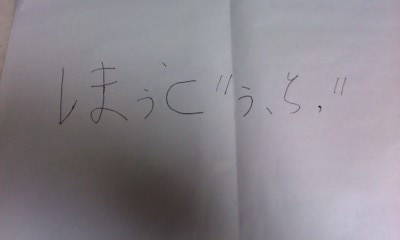 ほうご う、ち、"